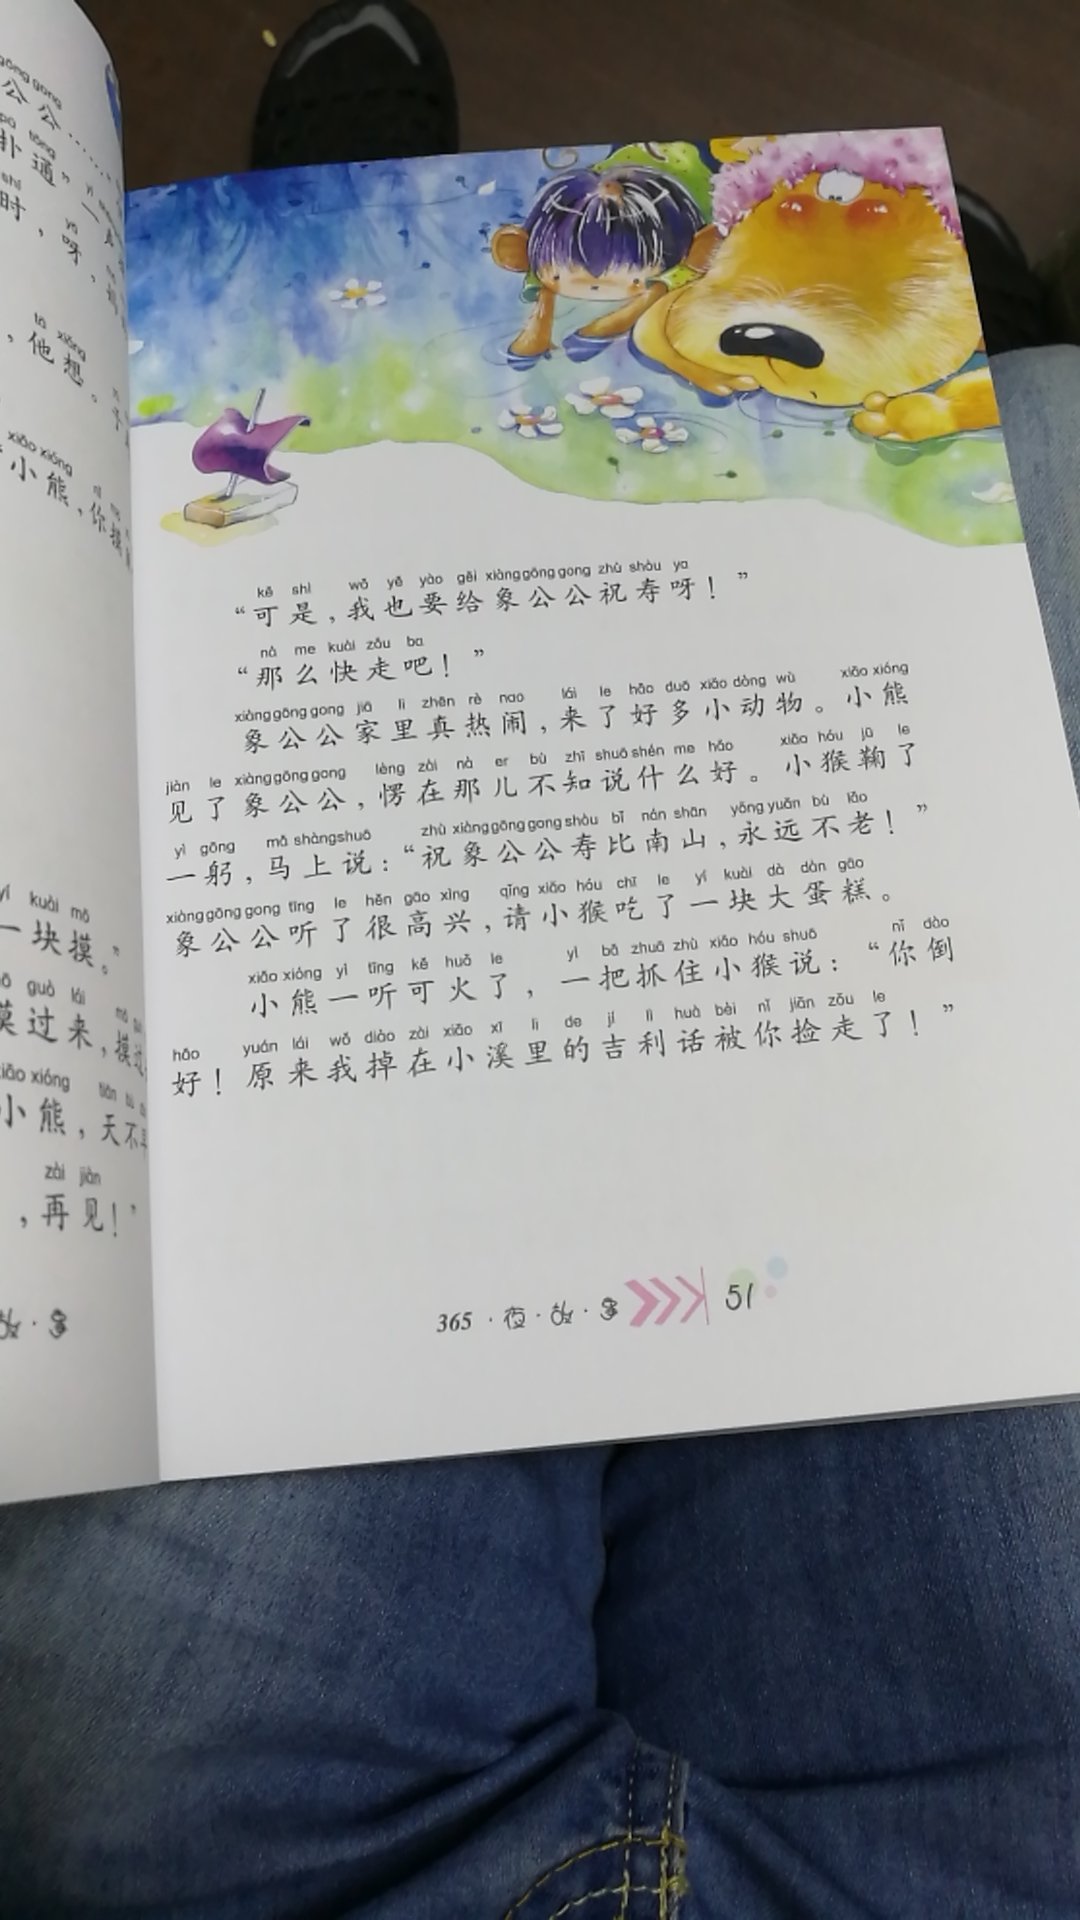 gōng gong
公公……
pū tōng
扑通”一
shí yā
时，呀，
tā xiǎng
，他想。
xiǎo xióng nǐ
“小熊，你摸
yí kuài mō
一块摸。”
guò lái
摸过来，摸过
xiǎo xióng tiān bù
小熊，天不早
zài jiàn
，再见！”
kě shì wǒ yě yào gěi xiàng gōng gong zhù shòu ya
“可是，我也要给象公公祝寿呀！”
nà me kuài zǒu ba
“那么快走吧！”
xiàng gōng gong jiā lǐ zhēn rè nao lái le hǎo duō xiǎo dòng wù xiǎo xióng
象公公家里真热闹，来了好多小动物。小熊
jiàn le xiàng gōng gong lèng zài nà er bù zhī shuō shén me hǎo xiǎo hóu jū le
见了象公公，愣在那儿不知说什么好。小猴鞠了
yì gōng mǎ shàng shuō zhù xiàng gōng gong shòu bǐ nán shān yǒng yuǎn bù lǎo
一躬，马上说：“祝象公公寿比南山，永远不老！”
xiàng gōng gong tīng le hěn gāo xìng qǐng xiǎo hóu chī le yí kuài dà dàn gāo
象公公听了很高兴，请小猴吃了一块大蛋糕。
xiǎo xióng yì tīng kě huǒ le yì bǎ zhuā zhù xiǎo hóu shuō nǐ dào
小熊一听可火了，一把抓住小猴说：“你倒
hǎo yuán lái wǒ diào zài xiǎo xī lǐ de jí lì huà bèi nǐ jiǎn zǒu le
好！原来我掉在小溪里的吉利话被你捡走了！”
故·事
365·夜·故·事 51